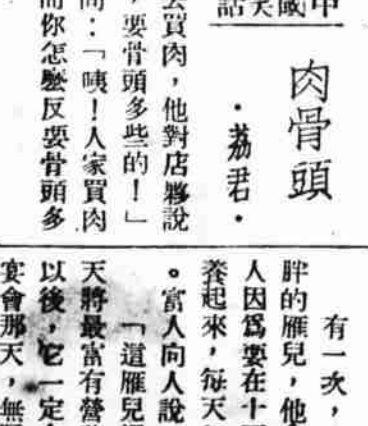 中國笑話
肉骨頭
・荔君・
去買肉,他對店夥說
,要骨頭多些的!」
問:「咦!人家買肉
而你怎麼反要骨頭多
有一次,
胖的雁兒,他
人因爲要在十
養起來,每天
。富人向人說
「這雁兒
天將最富有營
以後,它一定
宴會那天,無